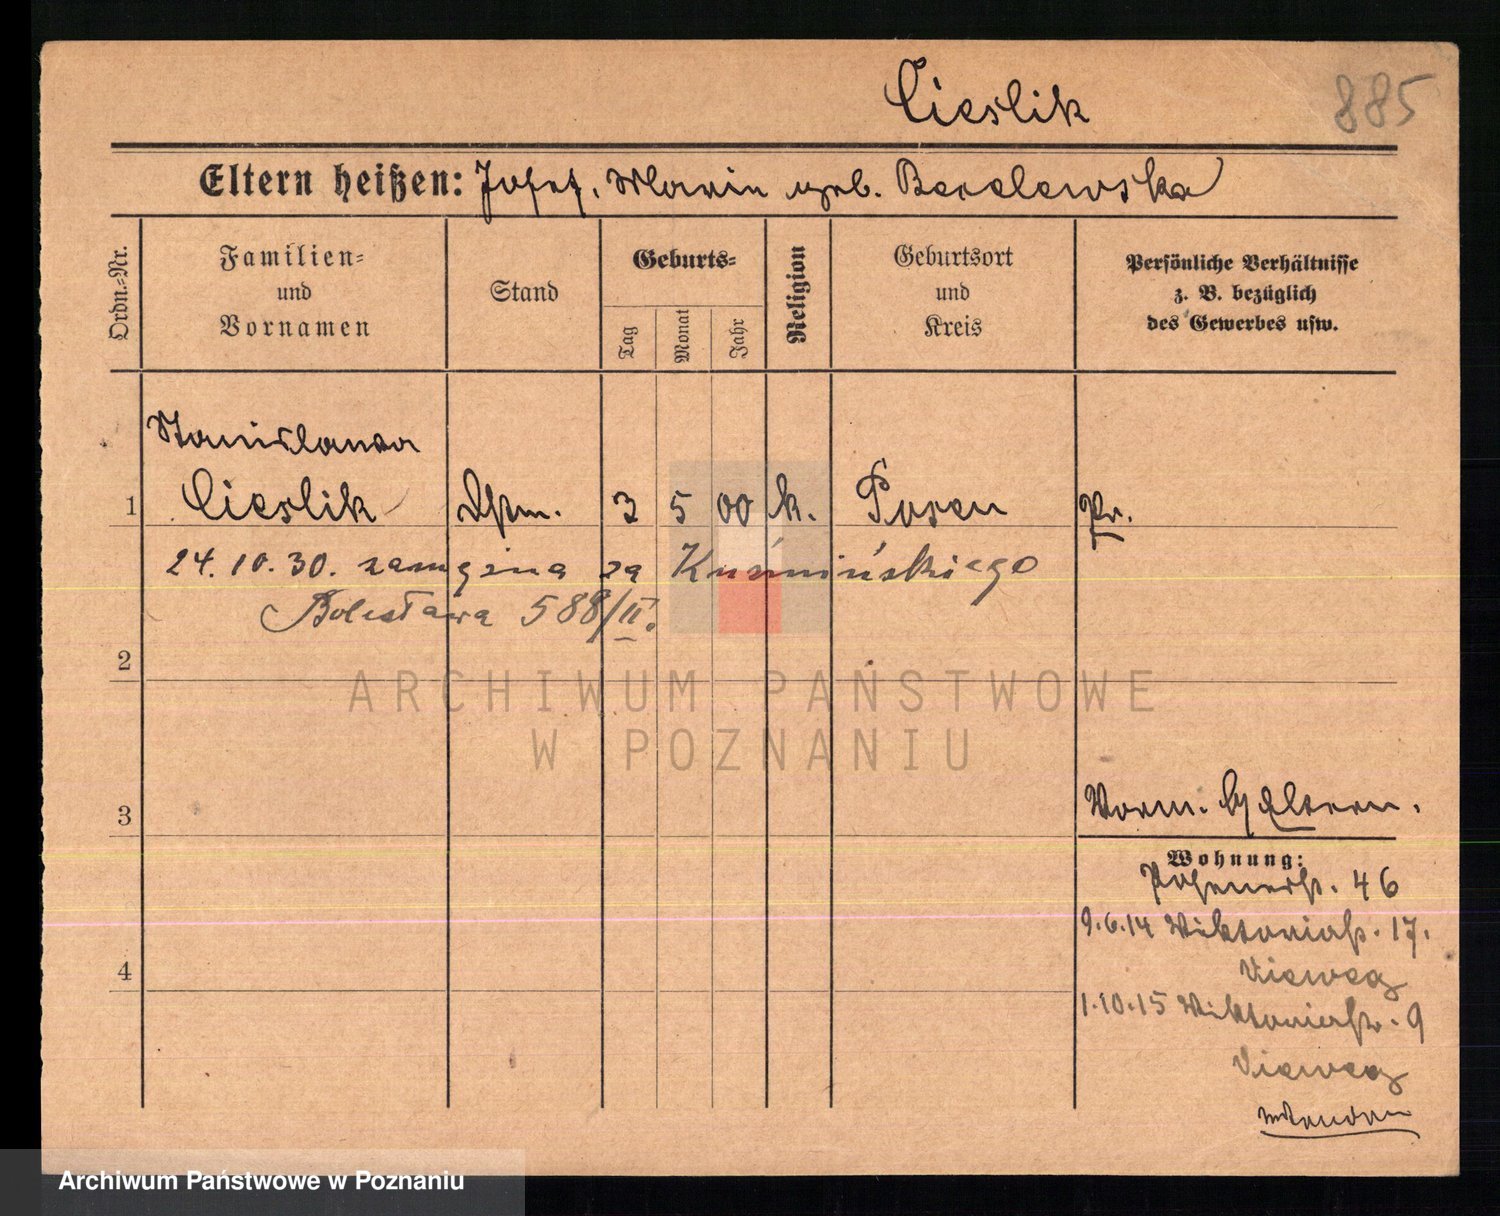 Cieslik
885
Eltern heißen: Josef, Maria geb. Berelewska
Ordn.-Nr.
Familien-
und
Vornamen
Stand
Geburts-
Tag
Monat
Jahr
Religion
Geburtsort
und
Kreis
Persönliche Verhältnisse
z. B. bezüglich
des Gewerbes usw.
Stanislawa
1 Cieslik 3 5 00 k. Posen Pr.
24.10.30. zamężna za Kuźmińskiego
Bolesława 588/II.
2
3
Vorm. b/ Eltern.
Wohnung:
Posenerstr. 46
9.6.14 Viktoriastr. 17.
Vieweg
4
1.10.15 Viktoriastr. 9
Vieweg
ARCHIWUM PAŃSTWOWE
W POZNANIU
Archiwum Państwowe w Poznaniu